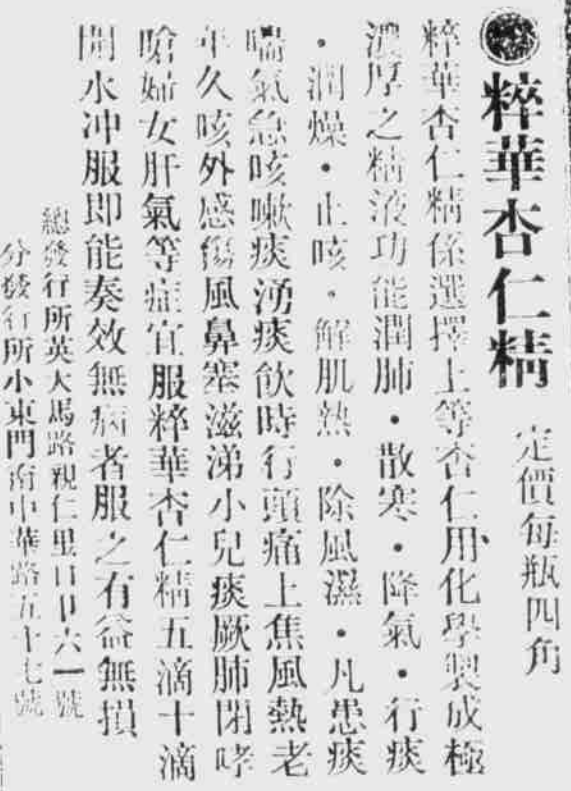 粹華杏仁精 定價每瓶四角
粹華杏仁精係選擇上等杏仁用化學製成極
濃厚之精液功能潤肺・散寒・降氣・行痰
・潤燥・止咳・解肌熱・除風濕・凡患痰
喘氣急咳嗽痰湧痰飲時行頭痛上焦風熱老
年久咳外感傷風鼻塞滋涕小兒痰厥肺閉哮
嗆婦女肝氣等症宜服粹華杏仁精五滴十滴
開水冲服即能奏效無病者服之有益無損
總發行所英大馬路親仁里口卩六一號
分發行所小東門南中華路五十七號